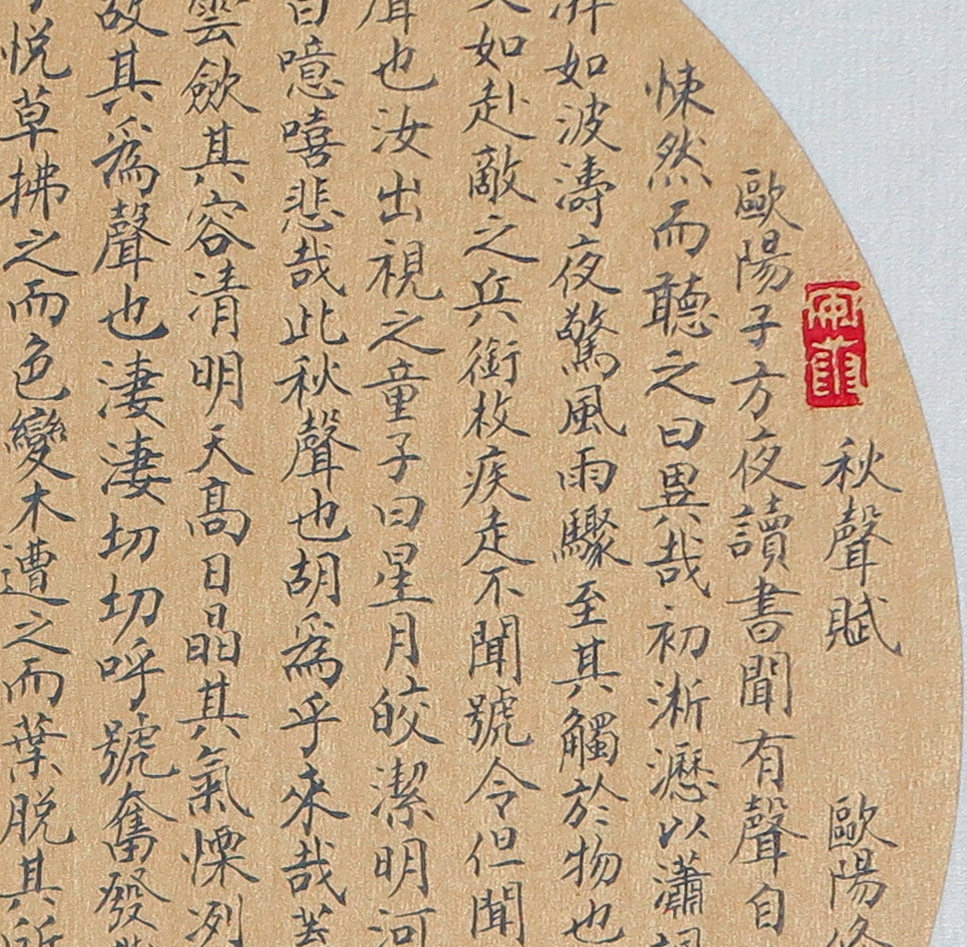 秋聲賦 歐陽
歐陽子方夜讀書聞有聲自
悚然而聽之曰異哉初淅瀝以瀟
湃如波濤夜驚風雨驟至其觸於物也
如赴敵之兵銜枚疾走不聞號令但聞
聲也汝出視之童子曰星月皎潔明河
曰噫嘻悲哉此秋聲也胡爲乎來哉
雲歛其容清明天高日晶其氣慄冽
故其爲聲也淒淒切切呼號奮發
悦草拂之而色變木遭之而葉脱其所